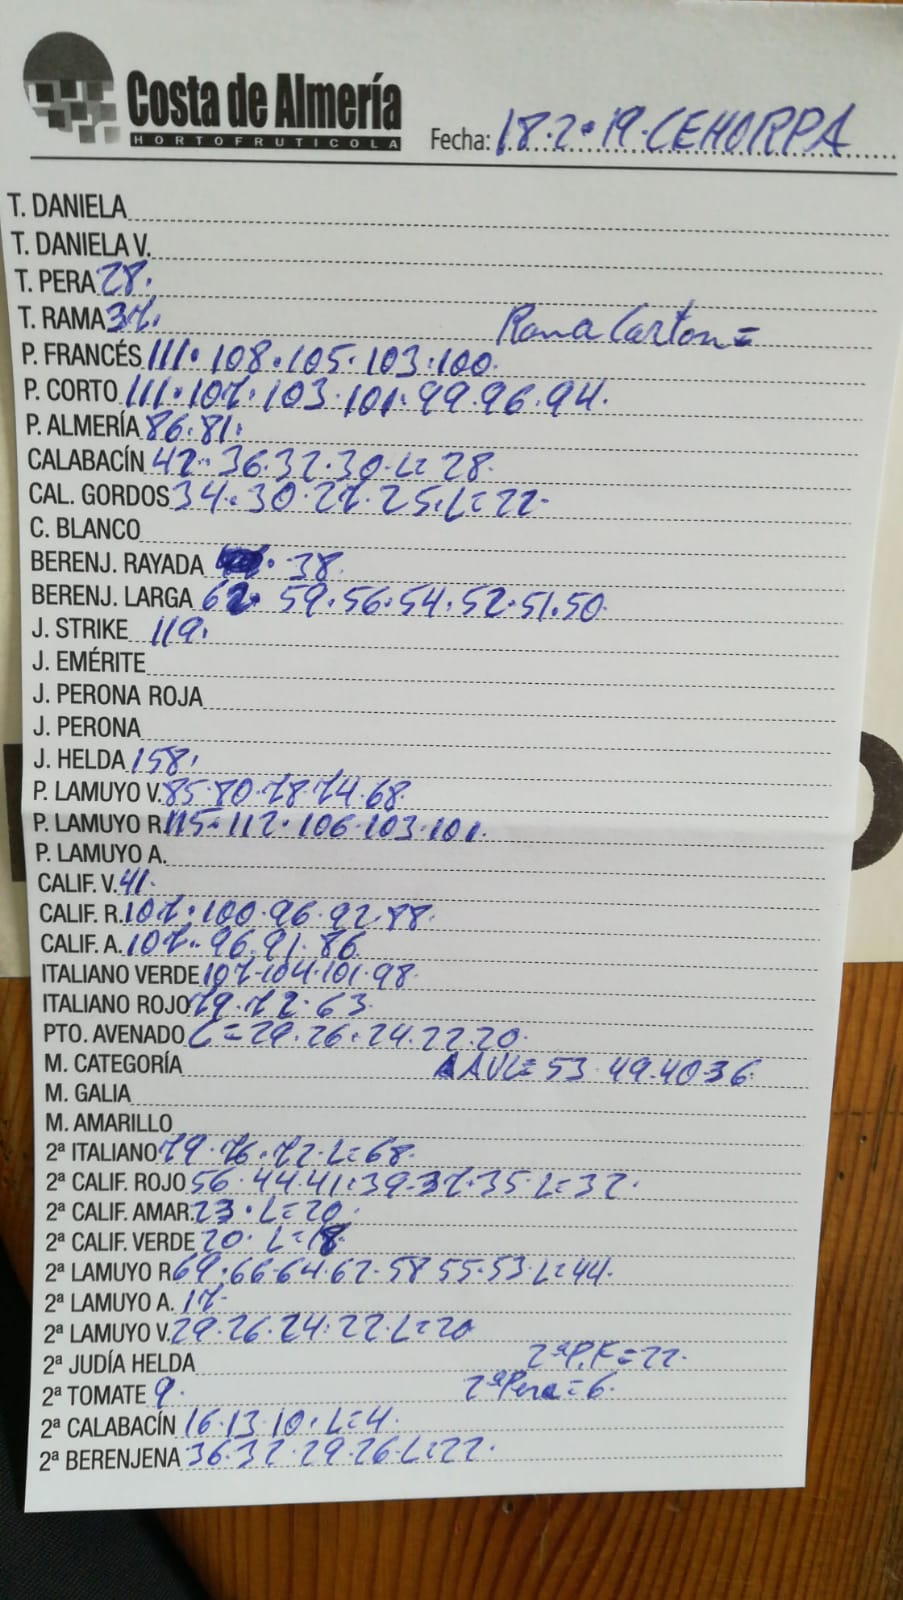 Costa de Almería
HORTOFRUTICOLA
Fecha: 18·2·19·CEHORPA
T. DANIELA
T. DANIELA V.
T. PERA 28.
T. RAMA 37. Rama Carton =
P. FRANCÉS 111· 108 · 105 · 103 · 100.
P. CORTO 111· 107 · 103 · 101· 99 · 96 · 94.
P. ALMERÍA 86 · 81.
CALABACÍN 42 · 36 · 32 · 30 · L= 28.
CAL. GORDOS 34 · 30 · 27 · 25 · L= 22·
C. BLANCO
BERENJ. RAYADA · 38.
BERENJ. LARGA 62· 59 · 56 · 54 · 52 · 51 · 50.
J. STRIKE 119.
J. EMÉRITE
J. PERONA ROJA
J. PERONA
J. HELDA 158.
P. LAMUYO V. 85 · 80 · 78 · 74 · 68.
P. LAMUYO R. 115 · 112 · 106 · 103 · 101.
P. LAMUYO A.
CALIF. V. 41.
CALIF. R. 107 · 100 · 96 · 92 · 88.
CALIF. A. 107 · 96 · 91 · 86
ITALIANO VERDE 107 · 104 · 101 · 98.
ITALIANO ROJO 79 · 72 · 63.
PTO. AVENADO L= 29 · 26 · 24 · 22 · 20.
M. CATEGORÍA AAVL= 53 · 49 · 40 · 36.
M. GALIA
M. AMARILLO
2ª ITALIANO 79 · 76 · 72 · L= 68.
2ª CALIF. ROJO 56 · 44 · 41 · 39 · 37 · 35 · L= 32.
2ª CALIF. AMAR. 23 · L= 20.
2ª CALIF. VERDE 20 · L= 18
2ª LAMUYO R 69 · 66 · 64 · 62 · 58 · 55 · 53 · L= 44.
2ª LAMUYO A. 17·
2ª LAMUYO V. 29 · 26 · 24 · 22 · L= 20
2ª JUDÍA HELDA 2ªP.F = 22.
2ª TOMATE 9. 2ªPera = 6.
2ª CALABACÍN 16 · 13 · 10 · L= 4.
2ª BERENJENA 36 · 32 · 29 · 26 · L= 22.